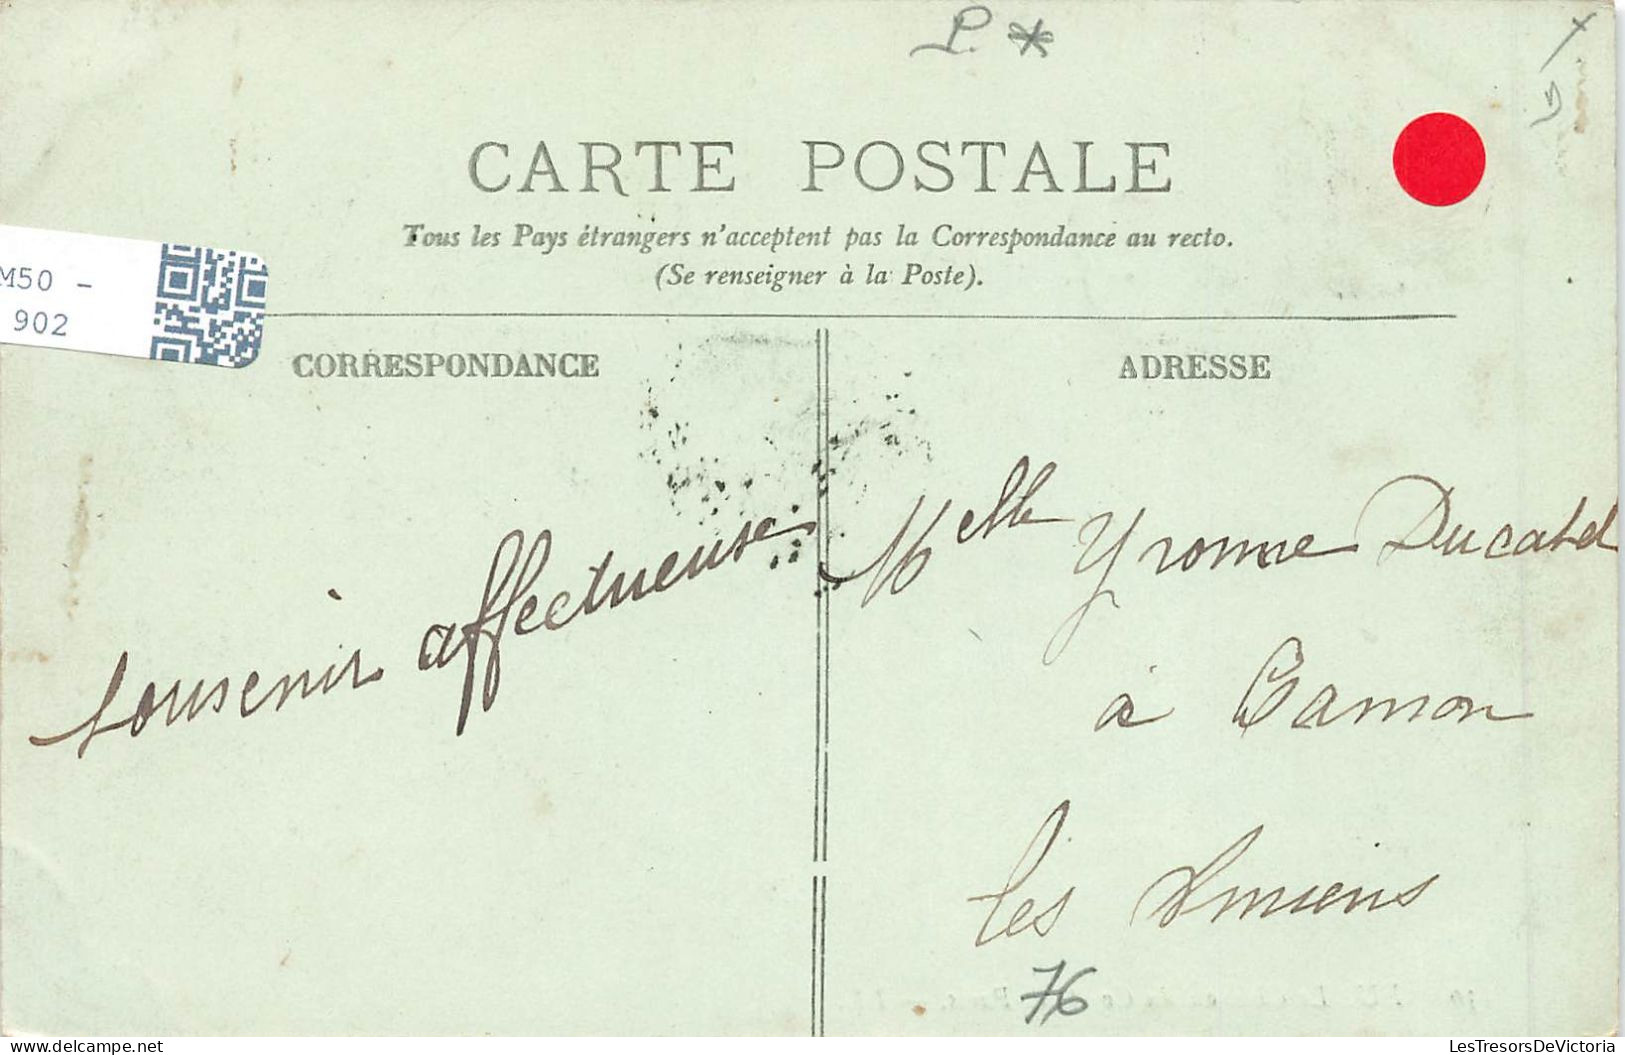 P. *
CARTE POSTALE
Tous les Pays étrangers n'acceptent pas la Correspondance au recto.
(Se renseigner à la Poste).
M50 -
902
CORRESPONDANCE
ADRESSE
Souvenir affectueuse
Melle Yvonne Ducatel
à Camon
les Amiens
76
LesTresorsDeVictoria